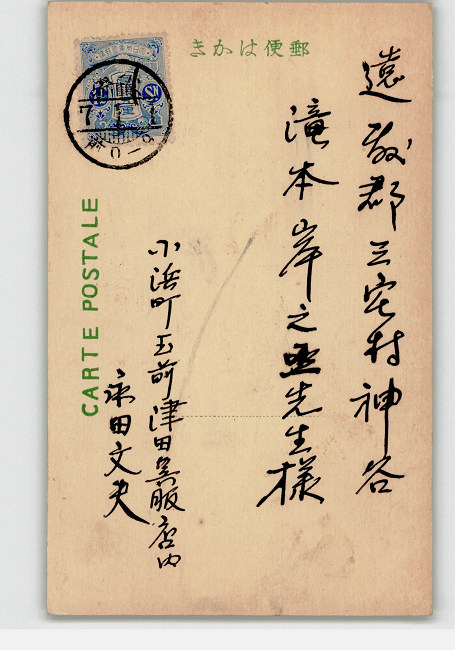 きかは便郵
遠敷郡三宅村神谷
滝本岸之丞先生様
小浜町玉前津田呉服店内
永田文夫
CARTE POSTALE